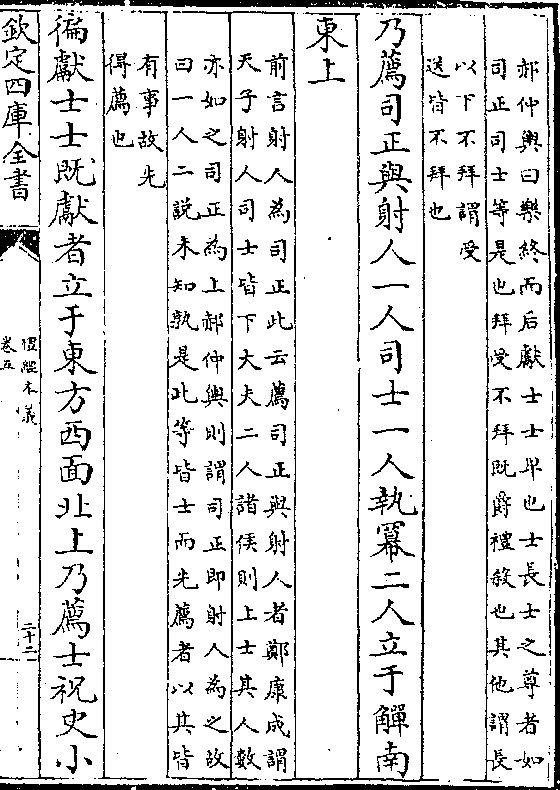 郝仲輿曰樂終而后獻士士卑也士長士之尊者如
司正司士等是也拜受不拜既爵禮殺也其他謂長
以下不拜謂受
送皆不拜也
乃薦司正與射人一人司士一人執冪二人立于觶南
東上
前言射人為司正此云薦司正與射人者鄭康成謂
天子射人司士皆下大夫二人諸侯則上士其人數
亦如之司正為上郝仲輿則謂司正即射人為之故
曰一人二說未知孰是此等皆士而先薦者以其皆
有事故先
得薦也
徧獻士士既獻者立于東方西面北上乃薦士祝史小
欽定四庫全書
禮經本義
卷五
二十二